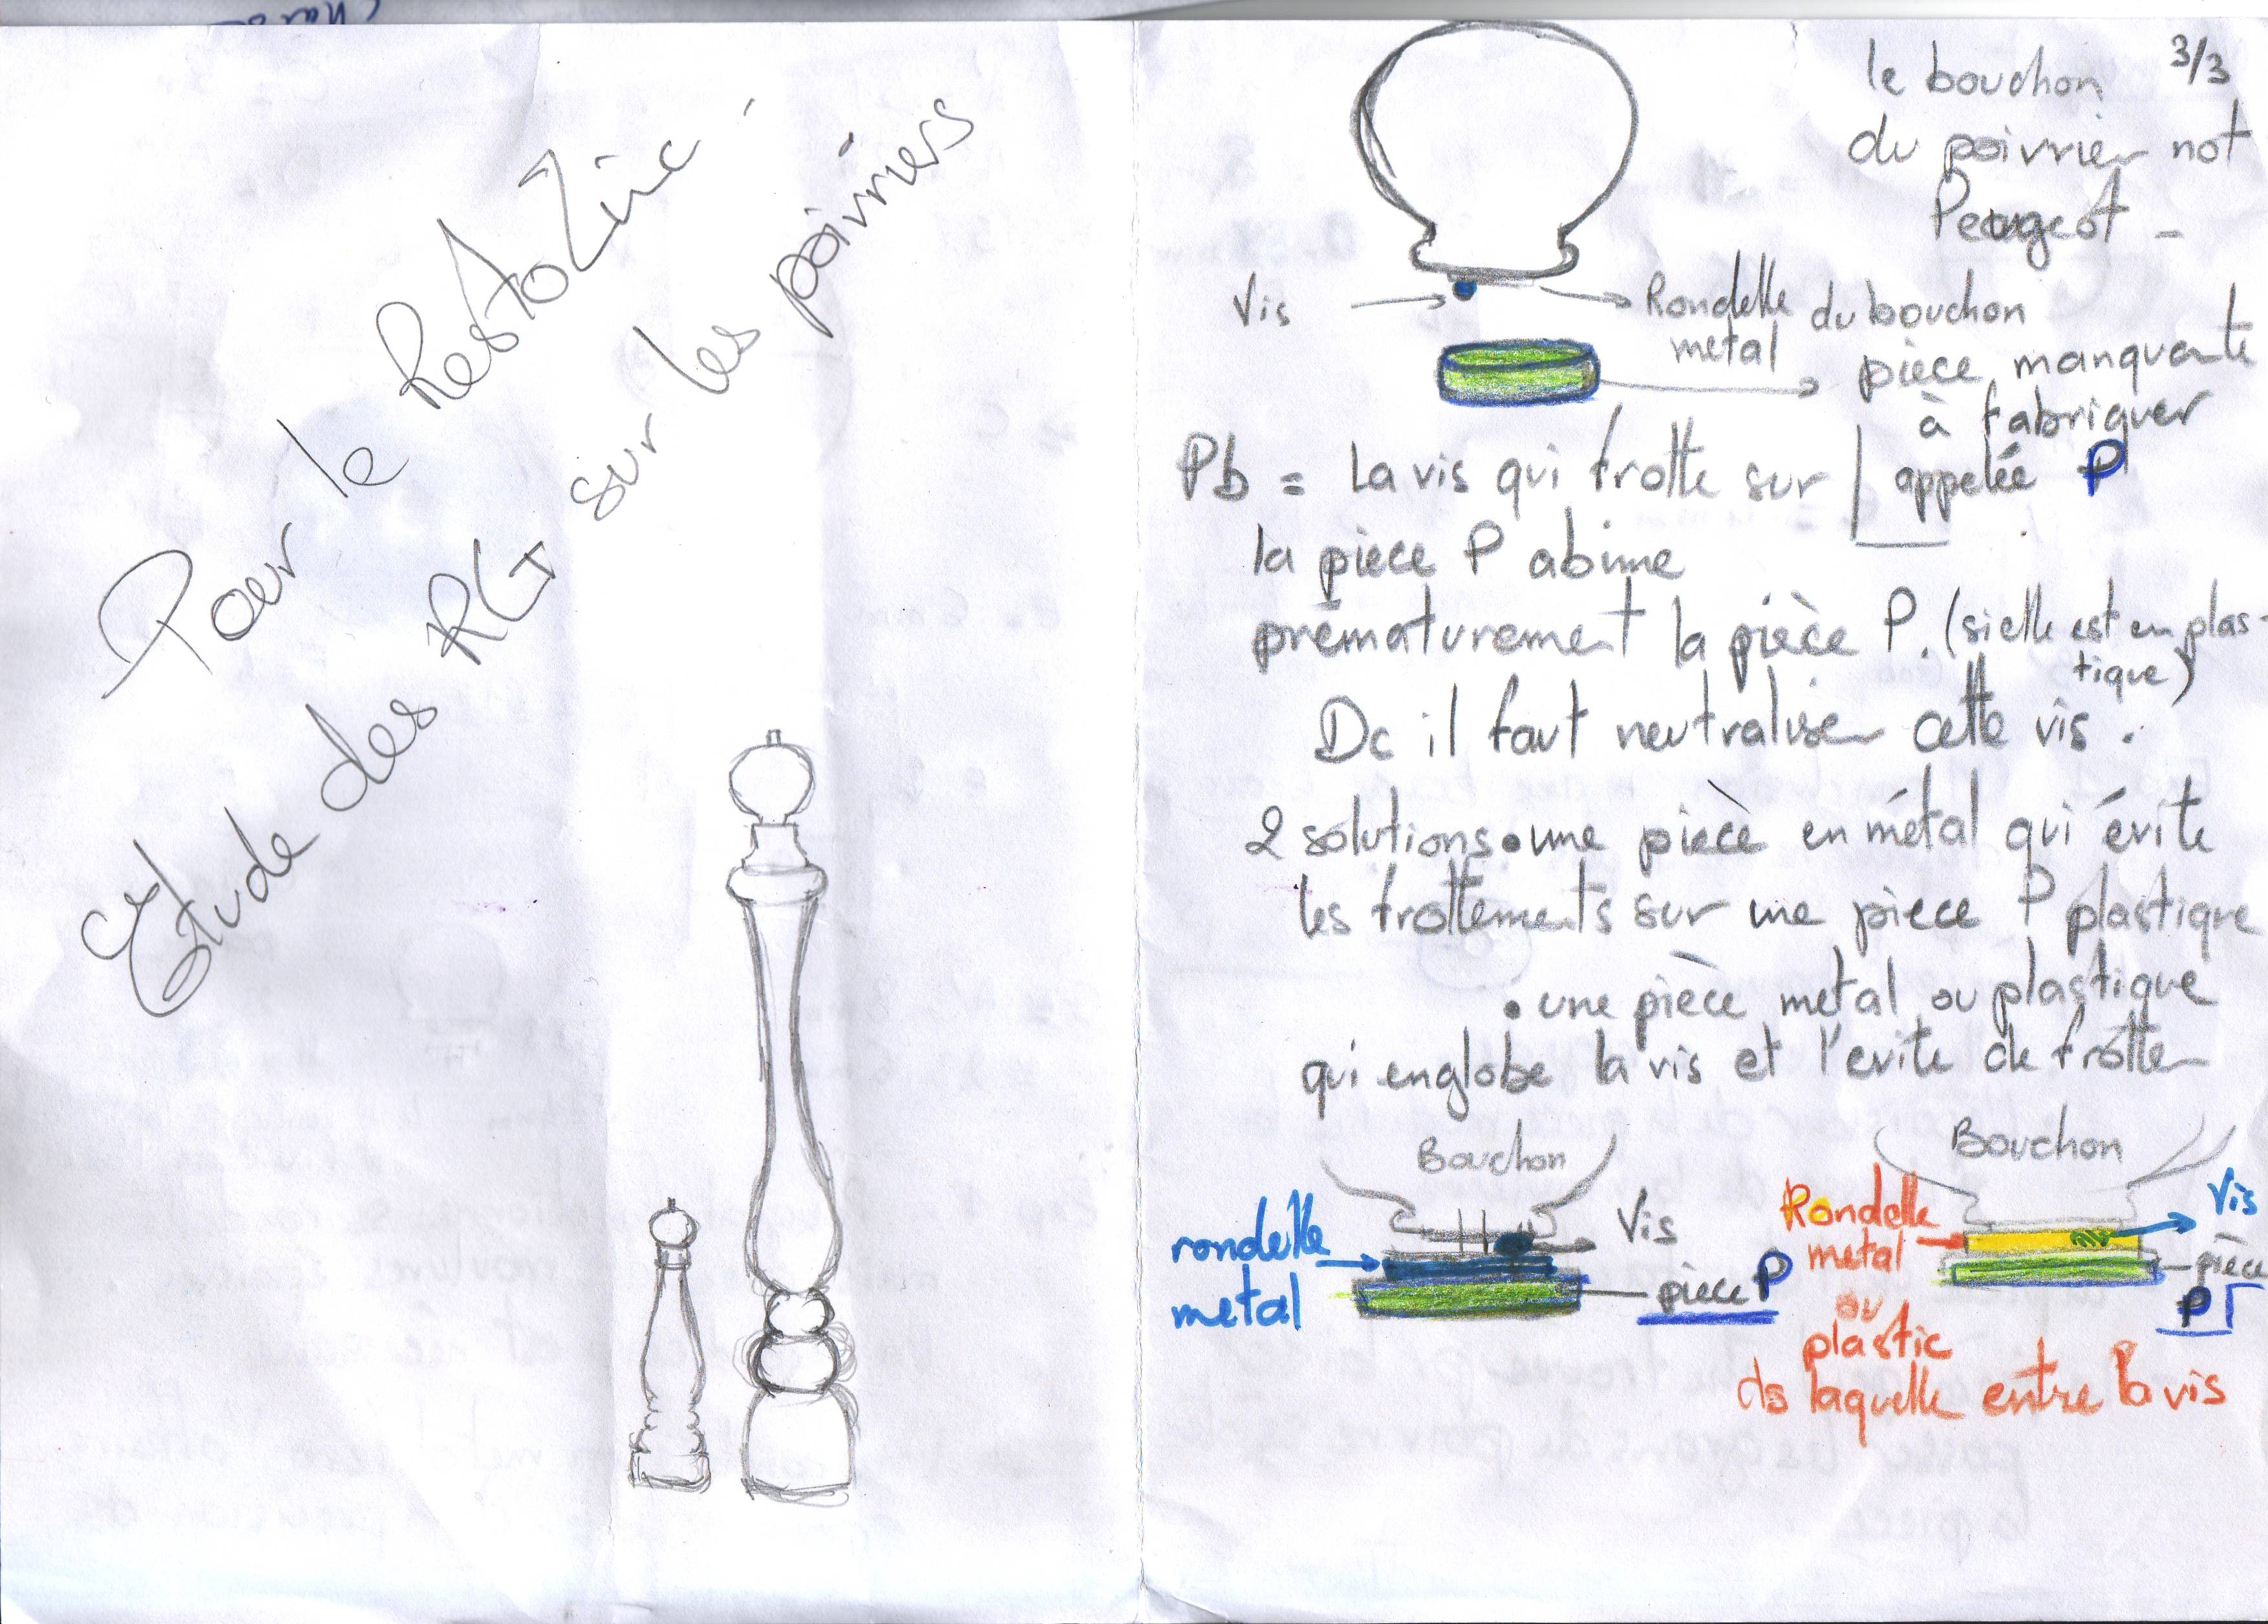 Pour le RestoZinc.
Etude des RGT sur les poivriers
3/3
le bouchon
du poivrier not
Peugeot -
Vis
Rondelle du bouchon
metal
pièce manquante
à fabriquer
appelée P
Pb = La vis qui frotte sur
la piece P abime
prématurement la pièce P. (si elle est en plas-
tique)
Dc il faut neutraliser cette vis.
2 solutions • une pièce en métal qui évite
les frottements sur une piece P plastique
• une pièce metal ou plastique
qui englobe la vis et l'evite de frotter
Bouchon
Vis
rondelle
metal
pièce P
Bouchon
Rondelle
metal
ou
plastic
ds laquelle entre la vis
Vis
pièce
P